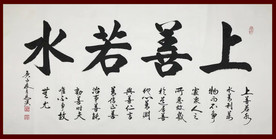 上善若水
上善若水
水善利萬
物而不爭
處衆人之
所惡故幾
於道居善
地心善淵
與善仁言
善信正善
治事善能
動善時夫
唯不爭故
無尤